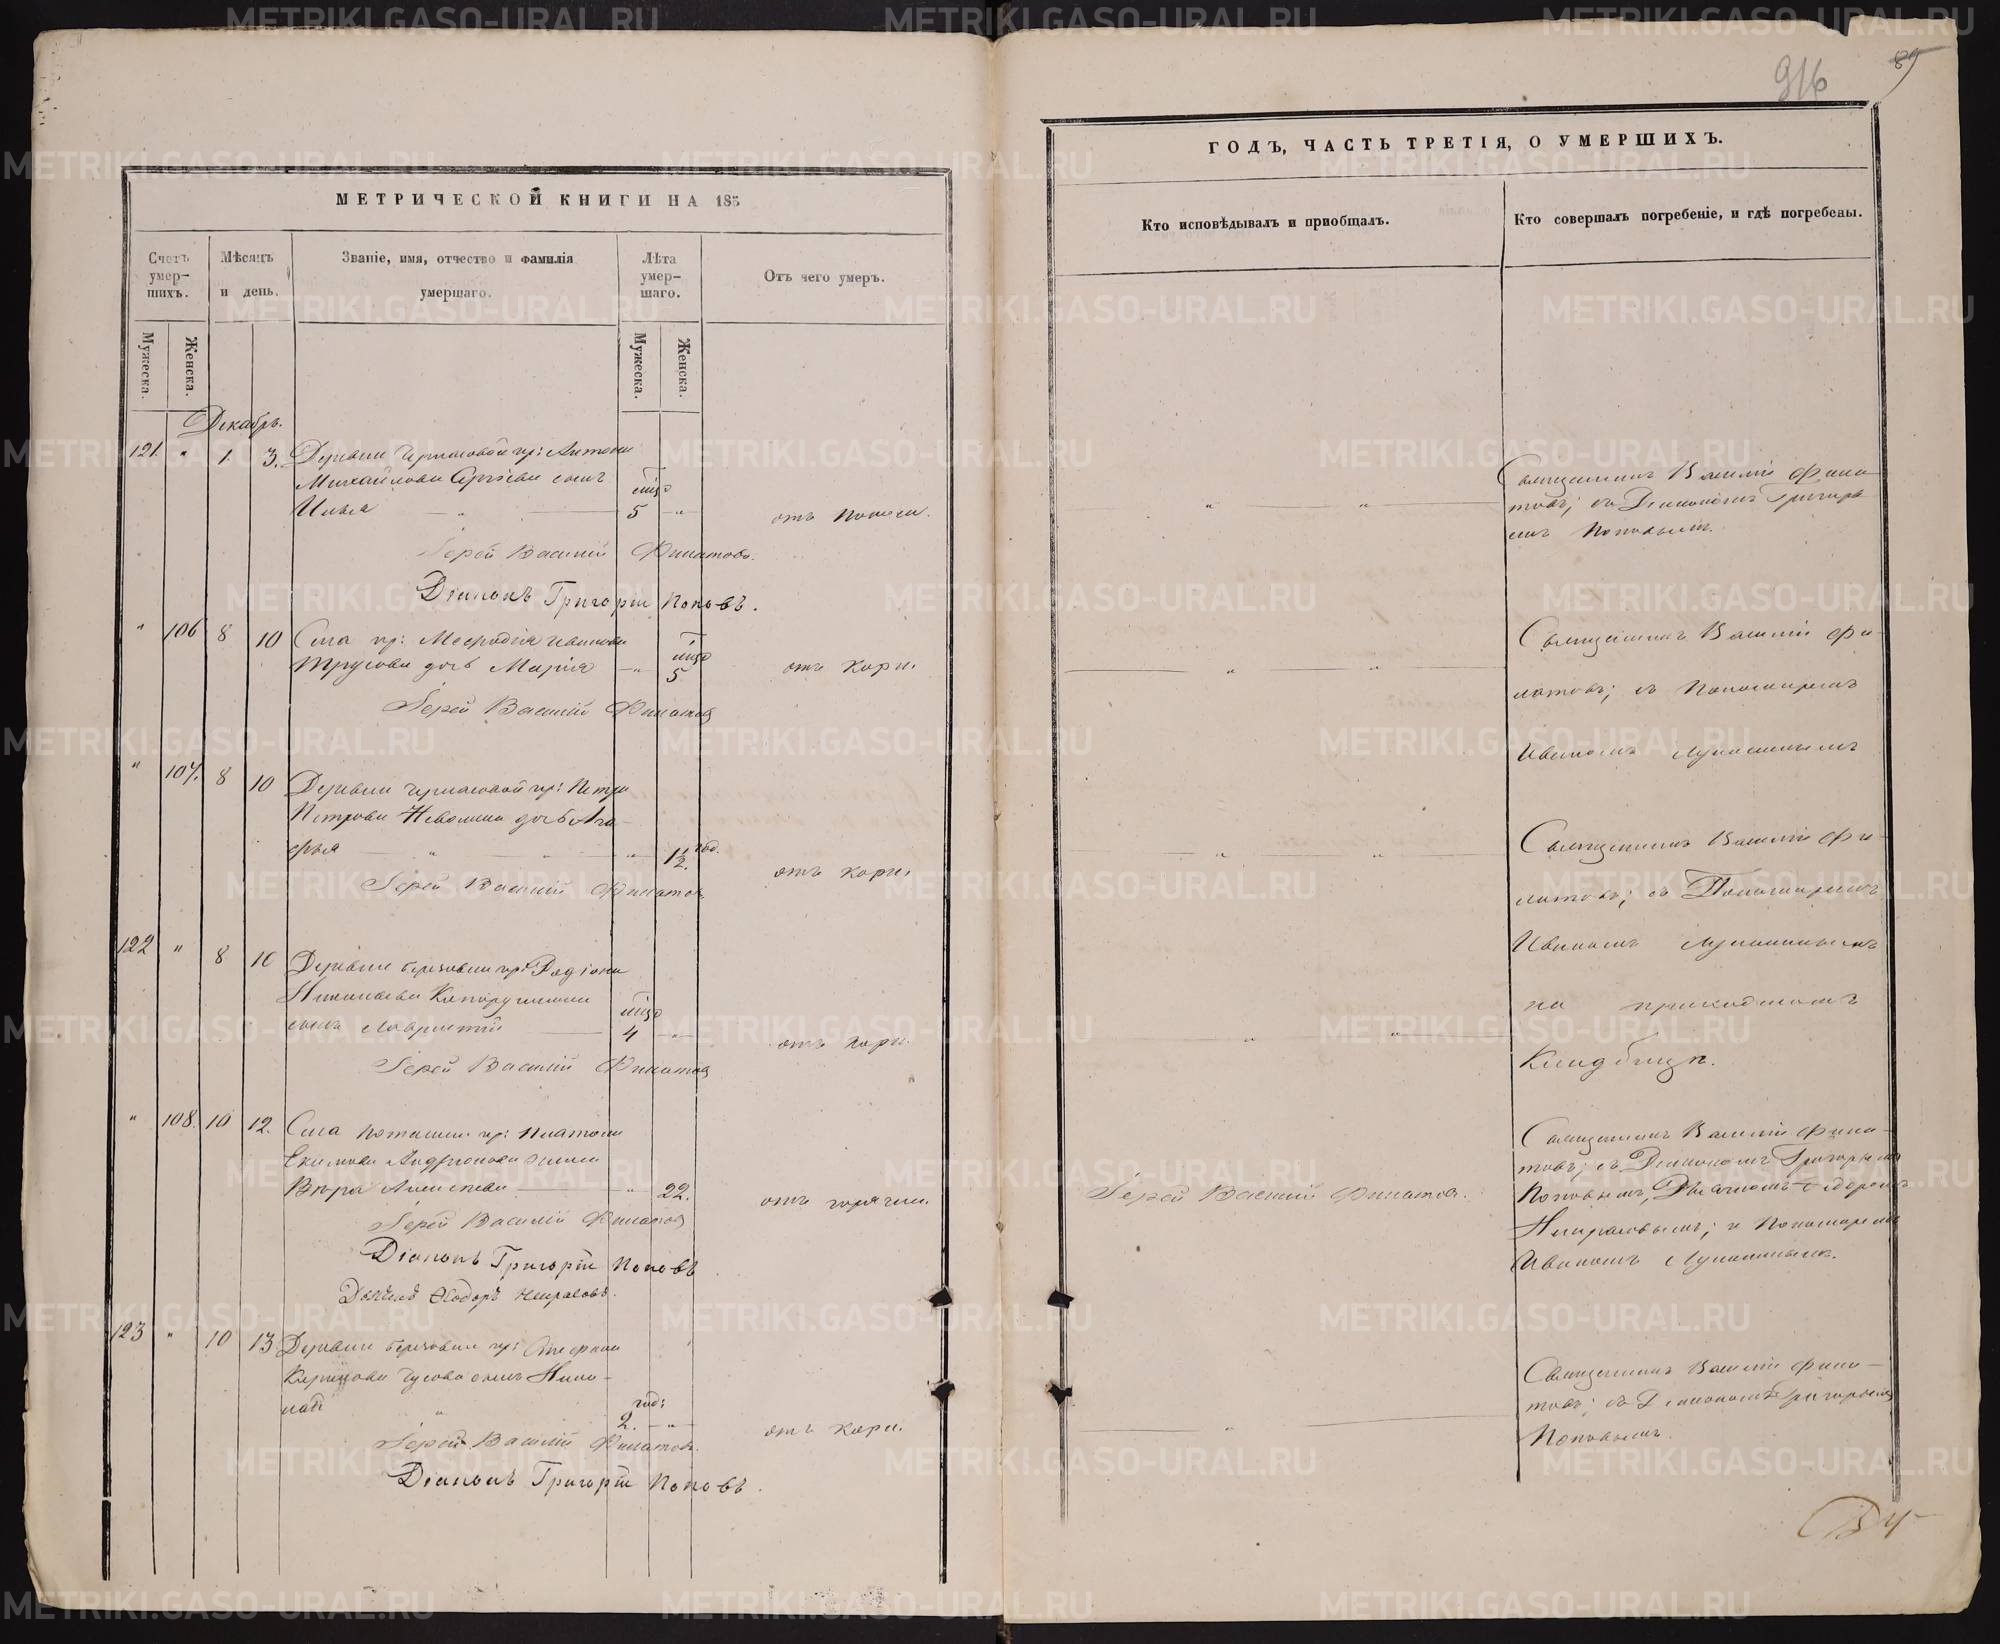 916
89
МЕТРИЧЕСКОЙ КНИГИ НА 185
ГОДЪ, ЧАСТЬ ТРЕТІЯ, О УМЕРШИХЪ.
Счетъ умер-
шихъ.
Мѣсяцъ
и день.
Званіе, имя, отчество и фамилія
умершаго.
Лѣта
умер-
шаго.
Отъ чего умеръ.
Кто исповѣдывалъ и пріобщалъ.
Кто совершалъ погребеніе, и гдѣ погребены.
Мужеска.
Женска.
Мужеска.
Женска.
Декабрь.
121. " 1 3. Деревни кр: Антона
Михайлова Сергѣева сынъ
Илья 5 "
отъ поноса.
Священникъ Василій Фила-
товъ; съ Діакономъ Григорь
емъ Поповымъ.
Іерей Василій Филатовъ.
Діаконъ Григорій Поповъ.
" 106 8 10 Села кр: Меѳодія Иванова
Трусова дочь Марія " 5
отъ кори.
Священникъ Василій Фи-
латовъ; съ Пономаремъ
Иваномъ
Іерей Василій Филатовъ
" 107. 8 10 Деревни кр: Петра
Петрова Неволина дочь Ага-
фья " 1½ год.
отъ кори.
Священникъ Василій Фи-
латовъ; съ Пономаремъ
Иваномъ
Іерей Василій Филатовъ.
122 " 8 10 Деревни Березовки кр: Родіона
сынъ Лаврентій 4 "
отъ кори.
на приходскомъ
Кладбищѣ.
Іерей Василій Филатовъ
" 108. 10 12. Села Поташки кр: Платона
Екимова Андреонова жена
Вѣра Алексѣева " 22.
отъ горячки.
Іерей Василій Филатовъ.
Священникъ Василій Фила-
товъ; съ Діакономъ Григорьемъ
Поповымъ, Дьячкомъ Ѳедоромъ
Некрасовымъ; и Пономаремъ
Иваномъ
Іерей Василій Филатовъ
Діаконъ Григорій Поповъ
Дьячекъ Ѳеодоръ Некрасовъ.
123 " 10 13 Деревни Березовки кр:
Гусева сынъ Нико-
лай год: 2. "
отъ кори.
Священникъ Василій Фила-
товъ; съ Діакономъ Григорьемъ
Поповымъ.
Іерей Василій Филатовъ.
Діаконъ Григорій Поповъ.
METRIKI.GASO-URAL.RU